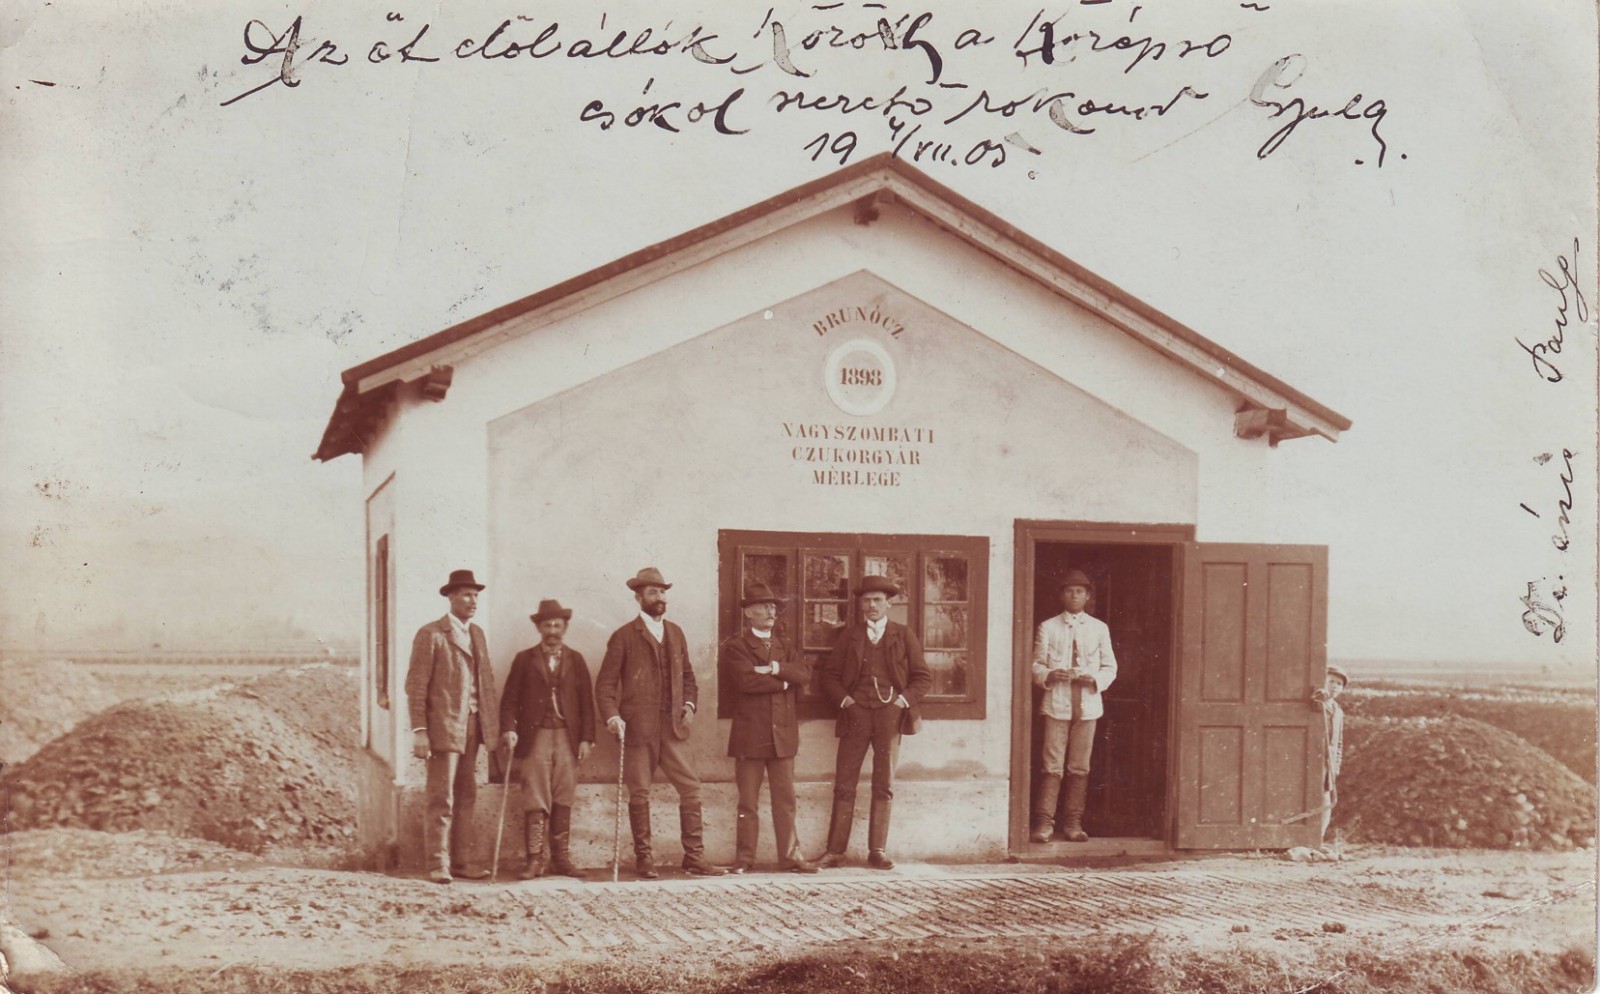 Az öt elől állók között a középső
csókol szerető rokonod Gyula
19 4/VII. 05.
BRUNÓCZ
1898
NAGYSZOMBATI
CZUKORGYÁR
MÉRLEGE
Pauly